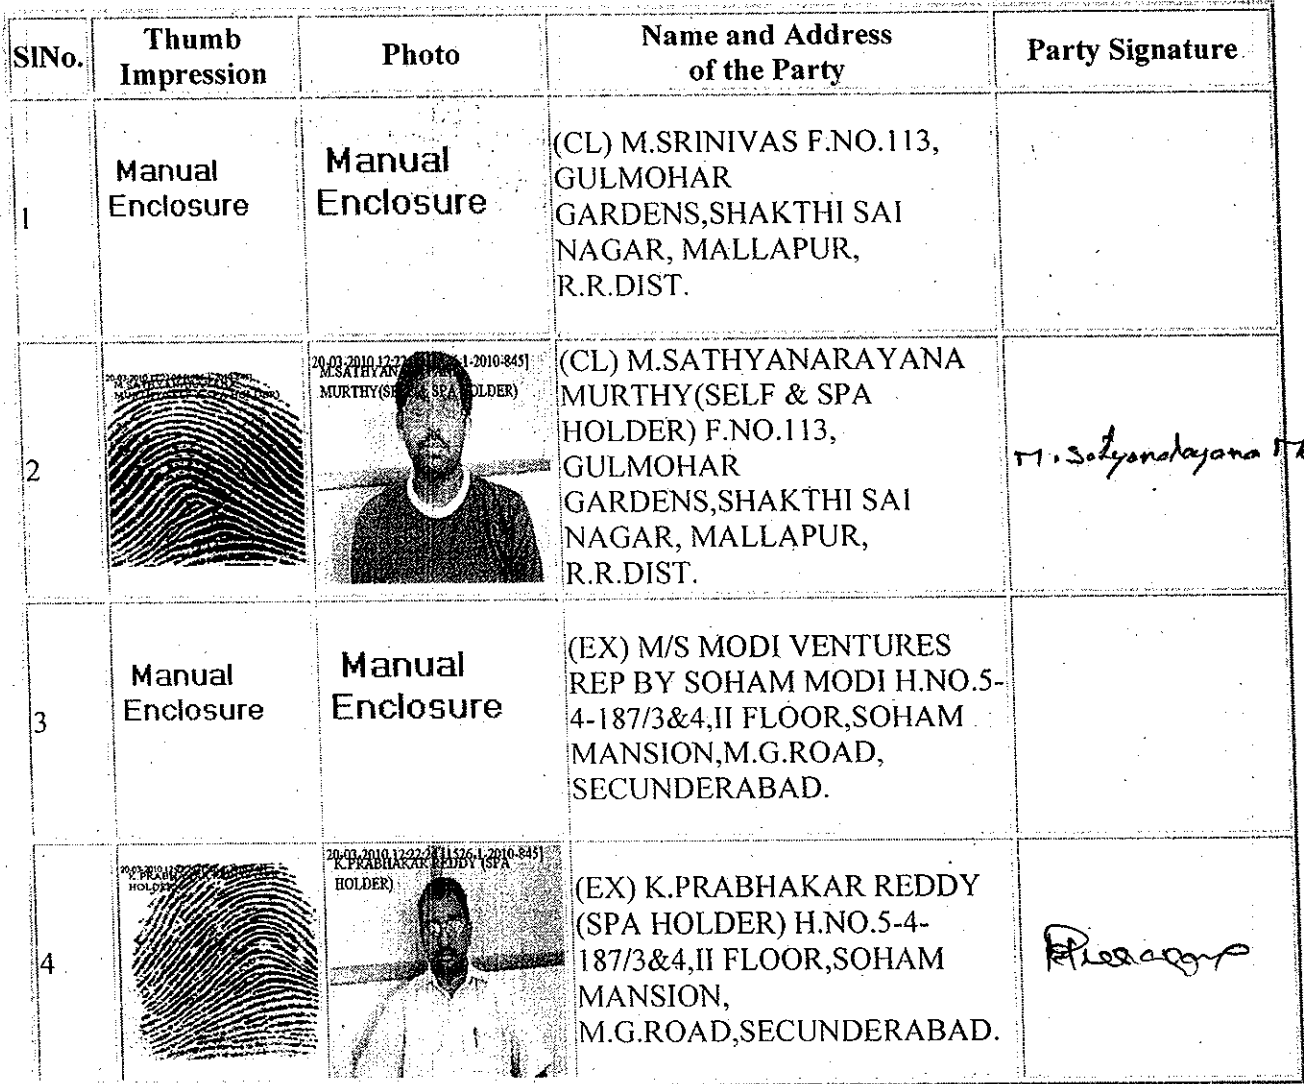 SlNo.
Thumb
Impression
Photo
Name and Address
of the Party
Party Signature
1
Manual
Enclosure
Manual
Enclosure
(CL) M.SRINIVAS F.NO.113,
GULMOHAR
GARDENS,SHAKTHI SAI
NAGAR, MALLAPUR,
R.R.DIST.
2
M.SATHYAN
MURTHY(SELF & SPA HOLDER)
(CL) M.SATHYANARAYANA
MURTHY(SELF & SPA
HOLDER) F.NO.113,
GULMOHAR
GARDENS,SHAKTHI SAI
NAGAR, MALLAPUR,
R.R.DIST.
M. Satyanarayana
3
Manual
Enclosure
Manual
Enclosure
(EX) M/S MODI VENTURES
REP BY SOHAM MODI H.NO.5-
4-187/3&4,II FLOOR,SOHAM
MANSION,M.G.ROAD,
SECUNDERABAD.
4
HOLDER)
K.PRABHAKAR REDDY (SPA
HOLDER)
(EX) K.PRABHAKAR REDDY
(SPA HOLDER) H.NO.5-4-
187/3&4,II FLOOR,SOHAM
MANSION,
M.G.ROAD,SECUNDERABAD.